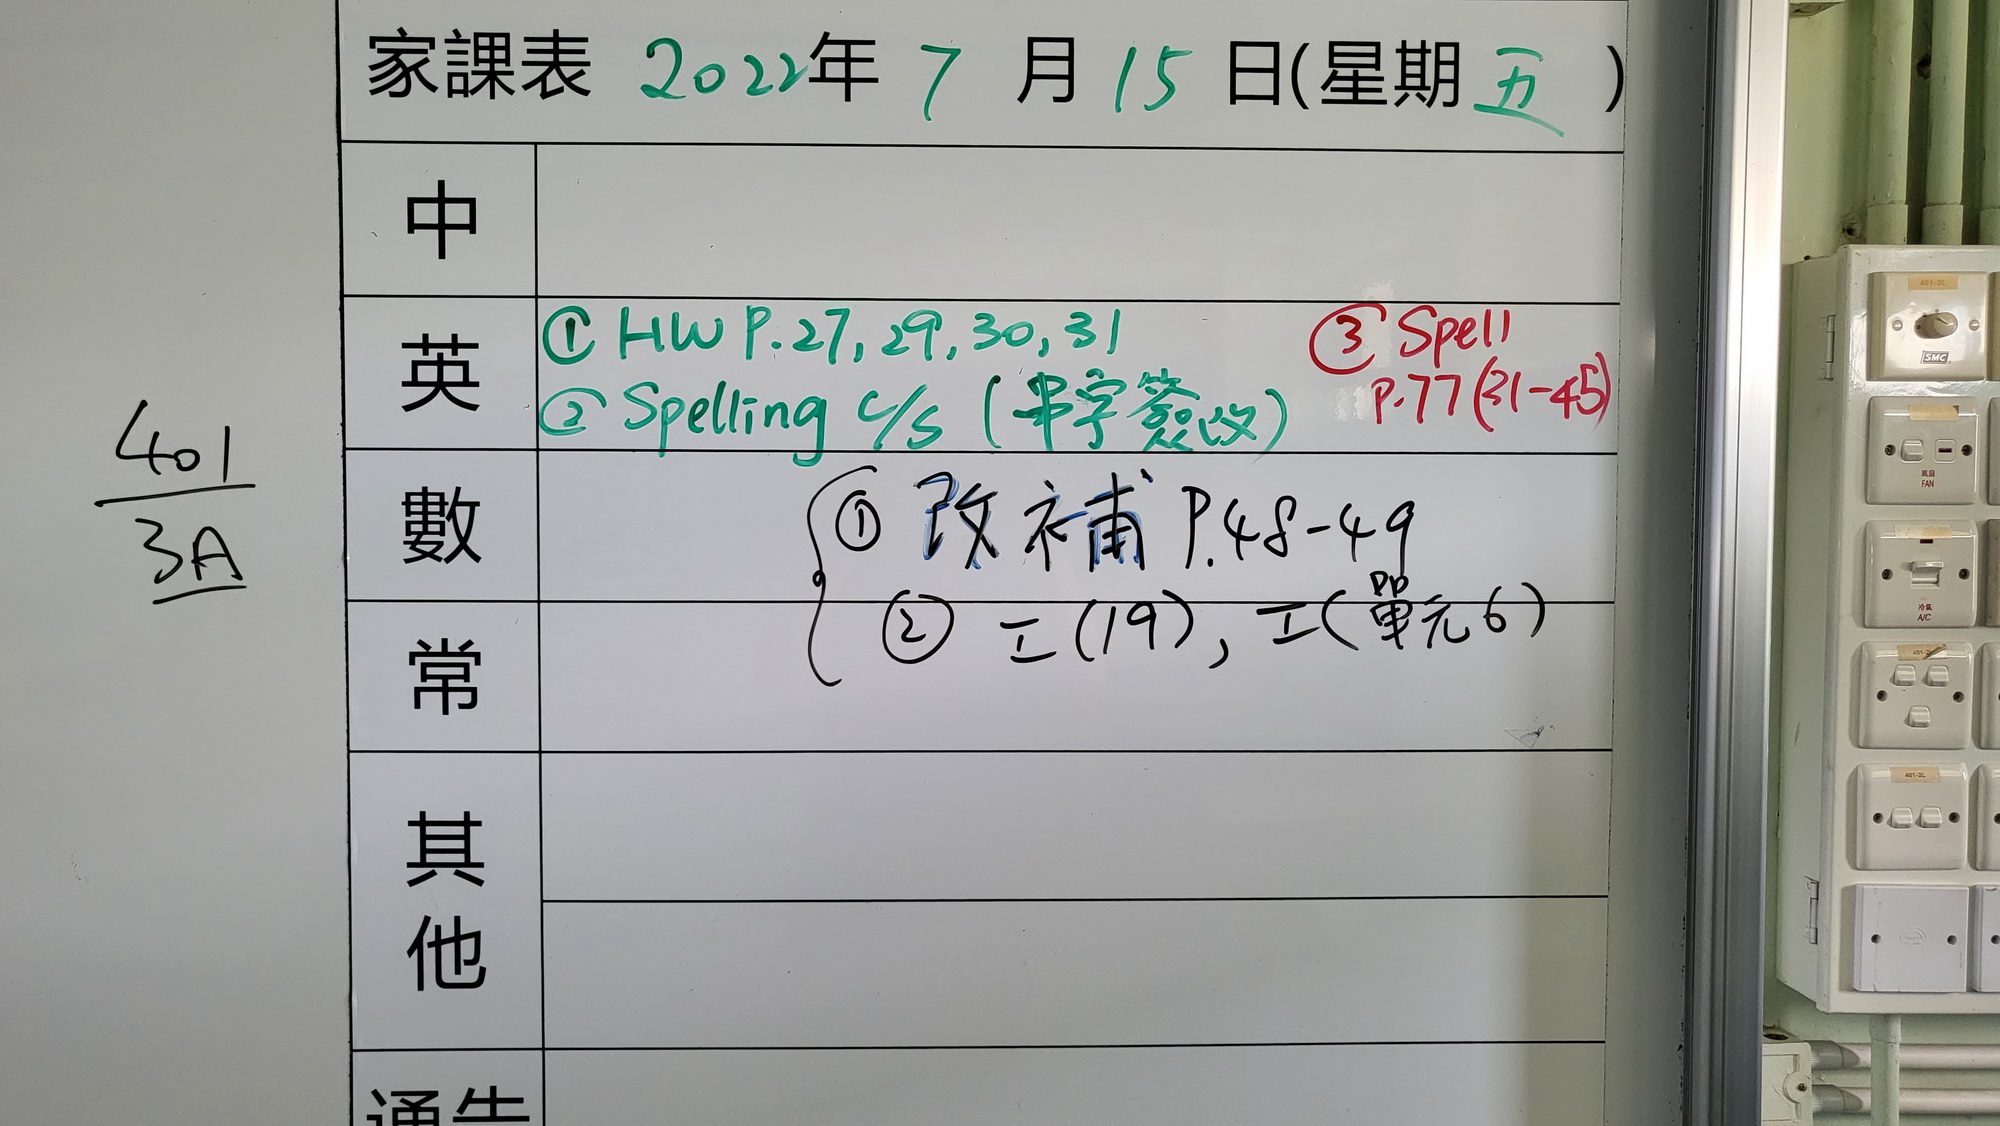 家課表 2022年 7 月 15 日(星期 五 )
中
英
① HW P.27, 29, 30, 31
② Spelling c/s (串字簽改)
③ Spell
P.77 (31-45)
數
① 改補 P.48-49
② 工(19), 工(單元6)
常
其他
通告
401
3A
401-3L
SMC
風扇
FAN
冷氣
A/C
401-2L